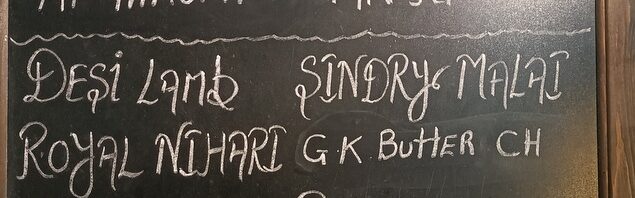 DESI LAMB SINDRY MALAI
ROYAL NIHARI G K BUTTER CH